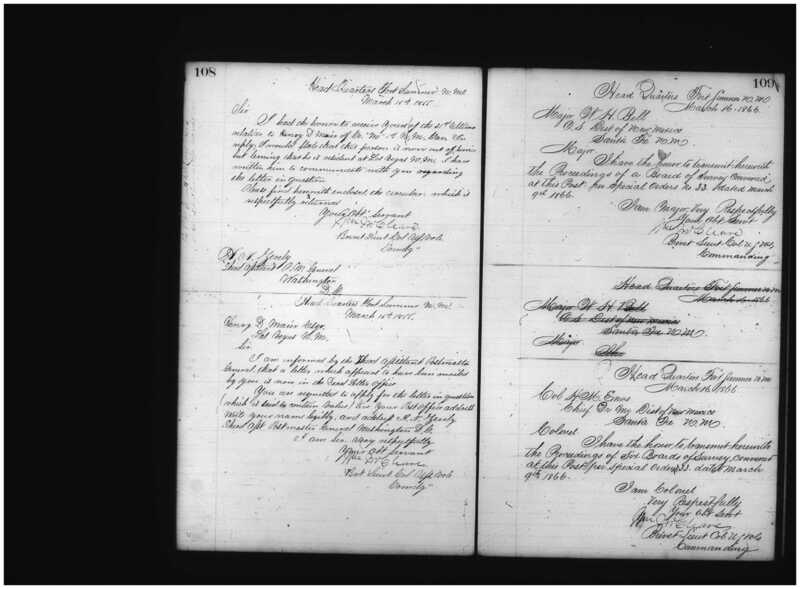 108
Head Quarters Fort Sumner N. Me
March 15th 1866.
Sir
I had the honor to receive yours of the 21st
relative to Henry D Maier of Co. "M" 1st N. M. Cav. In
reply I would state that this person is now out of service
but learning that he is resident at Las Vegas N. M. I have
written him to communicate with you regarding
the letter in question
Please find herewith enclosed, the circular which is
respectfully returned
Your Obt Servant
Wm McCleave
Brevet Lieut Col US Vols
Comdg
Third Asst P. M. General
Washington
D.C.
Head Quarters Fort Sumner N. Me
March 15th 1866.
Henry D Maier Esqr.
Las Vegas N. M.
Sir
I am informed by the Third Assistant Postmaster
General, that a letter which appears to have been mailed
by you is now in the Dead Letter office
You are requested to apply for the letter in question
(which is said to contain ) give your Post Office address
write your name legibly, and address
Third Asst Postmaster General Washington D.C.
I am Sir Very respectfully
Your Obt Servant
Wm McCleave
Bvt Lieut Col US Vols
Comdg
109
Head Quarters Fort Sumner N. M.
March 16. 1866.
Major W. H. Bell
C.S. Dist of New Mexico
Santa Fe N. M.
Major
I have the honor to transmit herewith
the Proceedings of a Board of Survey convened
at this Post per Special Orders No 33. dated March
9th 1866.
I am Major, Very Respectfully
Your Obt Servt
Wm McCleave
Brevet Lieut Col U.S. Vols,
Commanding
Head Quarters Fort Sumner N. M.
March 16 1866
Major W H Bell
C.S. Dist of New Mexico
Santa Fe N. M.
Major
I ha
Head Quarters Fort Sumner N. M.
March 16. 1866
Col H. M. Enos
Chief Qr Mr Dist of New Mexico
Santa Fe N. M.
Colonel
I have the honor, to transmit herewith
the Proceedings of Six Boards of Survey, convened
at this Post per Special Orders 33. dated March
9th 1866.
I am Colonel
Very Respectfully
Your Obt Servt
Wm McCleave
Brevet Lieut Col U.S. Vols
Commanding